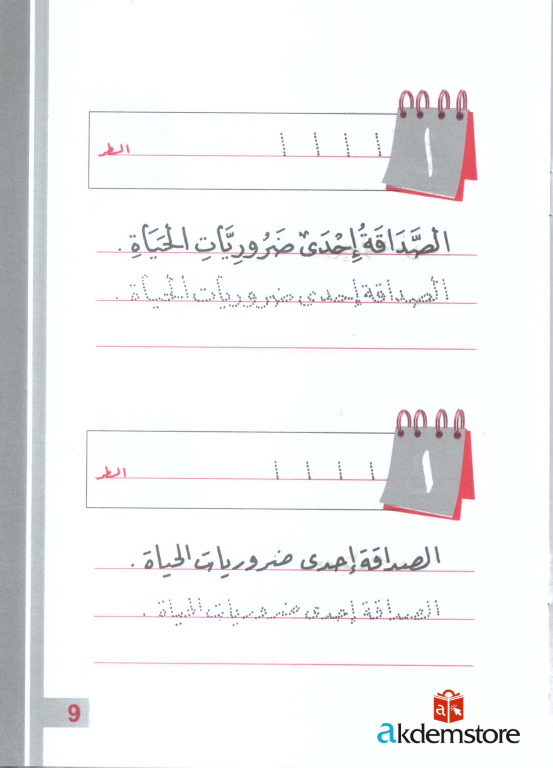 ا
ا ا ا ا
السطر
الصَّدَاقَةُ إِحْدَى ضَرُورِيَّاتِ الْحَيَاةِ .
الصداقة إحدى ضروريات الحياة .
ا
ا ا ا ا
السطر
الصداقة إحدى ضروريات الحياة .
الصداقة إحدى ضروريات الحياة .
9
akdemstore